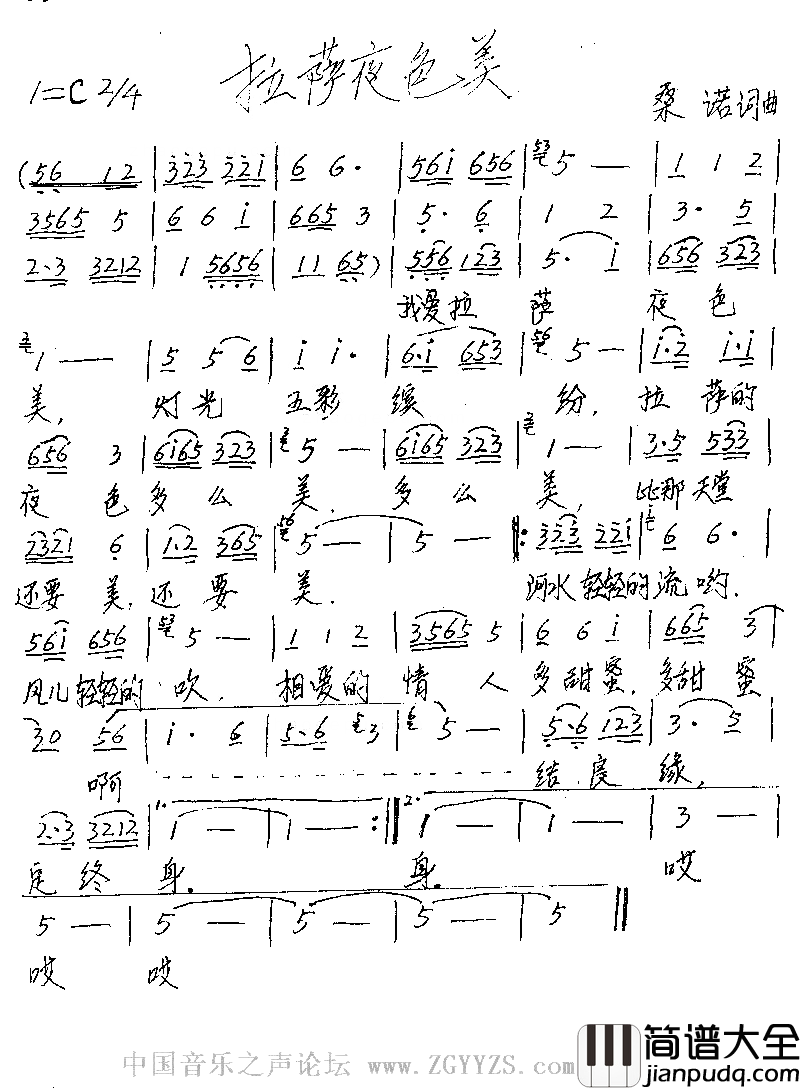 拉萨夜色美
1=C 2/4
桑诺词曲
(56 12 | 323 221 | 6 6· | 561 656 | 5 — | 1 1 2
3565 5 | 6 6 1 | 665 3 | 5· 6 | 1 2 | 3· 5
2·3 3212 | 1 5656 | 11 65) | 556 123 | 5· 1 | 656 323
我爱拉 萨 夜 色
1 — | 5 5 6 | 1 1· | 6·1 653 | 56 5 — | 1·2 1·1
美, 灯光 五彩 缤 纷, 拉 萨的
656 3 | 6165 323 | 5 — | 6165 323 | 1 — | 3·5 533
夜 色 多 么 美, 多 么 美, 比那天堂
2321 6 | 1·2 365 | 56 5 — | 5 — |: 323 221 | 6 6·
还要 美, 还 要 美. 河水轻轻的流哟.
561 656 | 5 — | 1 1 2 | 3565 5 | 6 6 1 | 665 3
风儿轻轻的 吹, 相爱的 情 人 多甜蜜, 多甜 蜜
30 56 | 1· 6 | 5·6 3 | 5 — | 5·6 123 | 3· 5
啊 结 良 缘,
2·3 3212 | 1. 1 — | 1 — :| 2. 1 — | 1 — | 3 —
定 终 身. 身. 哎
5 — | 5 — | 5 — | 5 — | 5 ‖
哎 哎
中国音乐之声论坛 www.ZGYYZS.com
简谱大全
jianpudq.com